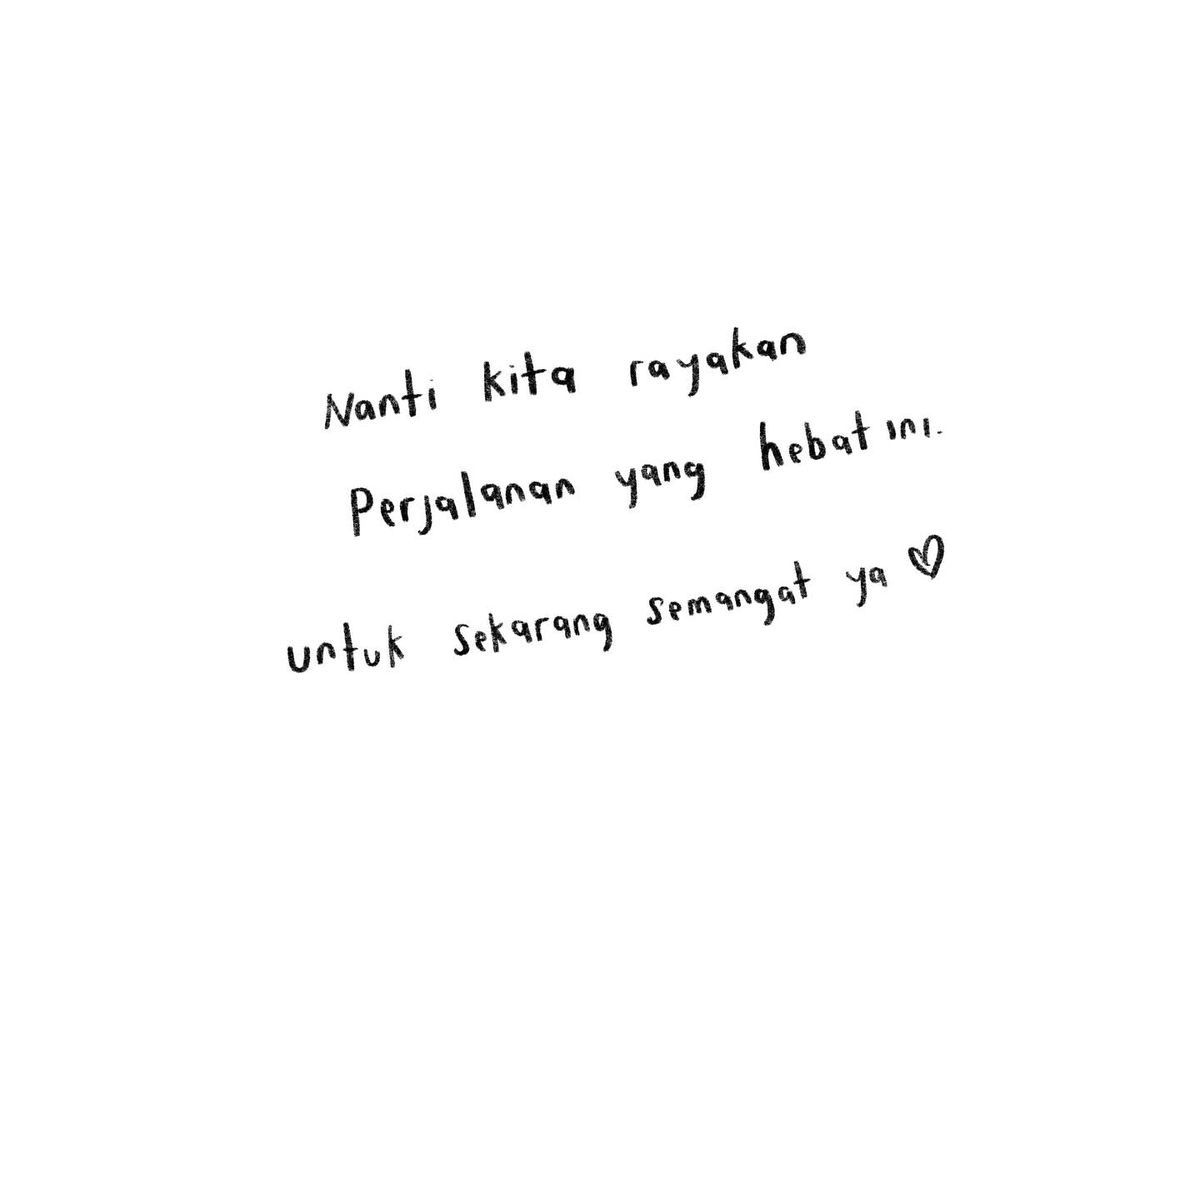 Nanti kita rayakan
Perjalanan yang hebat ini.
untuk sekarang semangat ya ♡